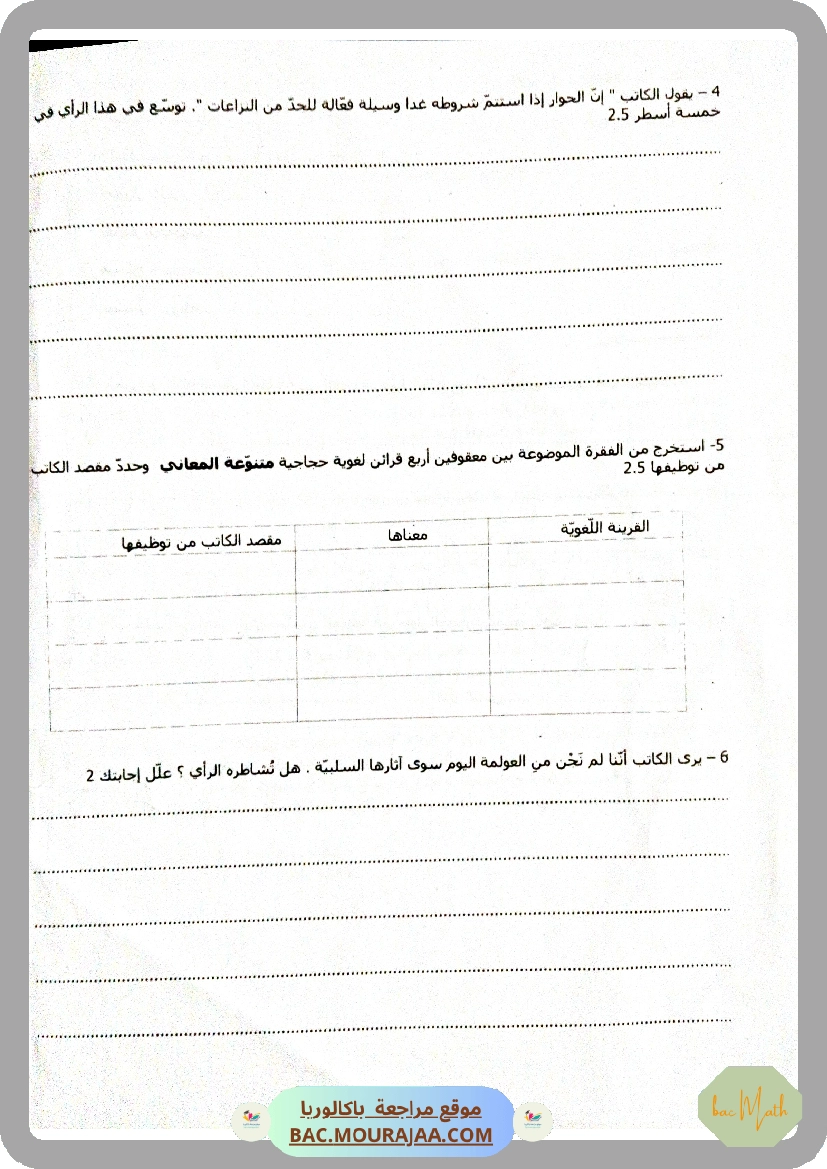 4 – يقول الكاتب " إنّ الحوار إذا استتمّ شروطه غدا وسيلة فعّالة للحدّ من النزاعات ". توسّع في هذا الرأي في
خمسة أسطر 2.5
5- استخرج من الفقرة الموضوعة بين معقوفين أربع قرائن لغوية حجاجية متنوّعة المعاني وحددّ مقصد الكاتب
من توظيفها 2.5
القرينة اللّغويّة معناها مقصد الكاتب من توظيفها
6 – يرى الكاتب أنّنا لم نَجْن منِ العولمة اليوم سوى آثارها السلبيّة . هل تُشاطره الرأي ؟ علّل إجابتك 2
موقع مراجعة باكالوريا
BAC.MOURAJAA.COM
bac Math